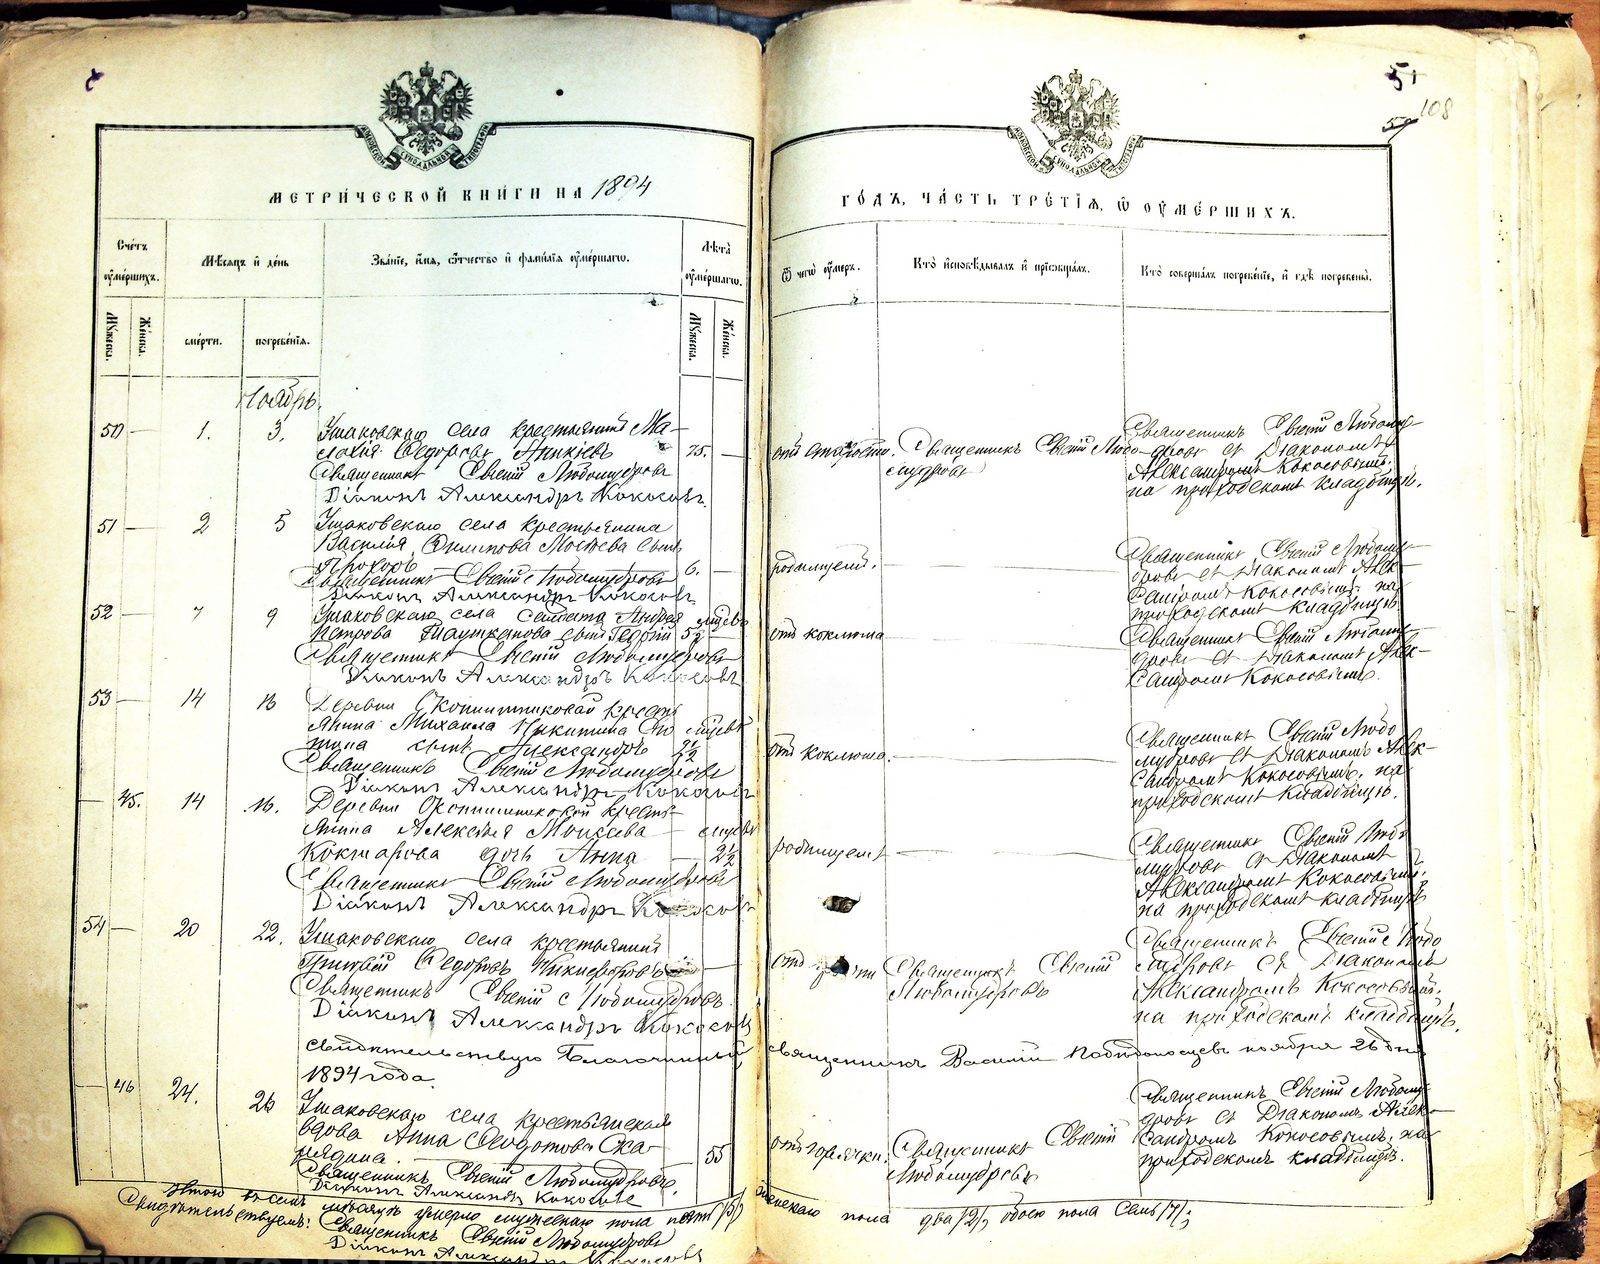 51
108
МЕТРИЧЕСКОЙ КНИГИ НА 1894
ГОДЪ, ЧАСТЬ ТРЕТІЯ, Ѿ ОУМЕРШИХЪ.
Счетъ оумершихъ.
Мѣсяцъ и день
Званіе, имя, ѿчество и фамилія оумершагѡ.
Лѣта оумершагѡ.
Ѿ чегѡ оумеръ.
Кто исповѣдывалъ и пріобщалъ.
Кто совершалъ погребеніе, и гдѣ погребены.
Мужеска.
Женска.
смерти.
погребенія.
Мужеска.
Женска.
Ноябрь.
50 — 1. 3. Ушаковскаго села крестьянинъ Ма-
лахія Ѳедоровъ Аникіевъ 75. —
Священникъ Евгеній Любомудровъ
Діаконъ Александръ Кокосовъ.
отъ старости. Священникъ Евгеній Любо-
мудровъ
Священникъ Евгеній Любому-
дровъ съ Діакономъ
Александромъ Кокосовымъ.
на приходскомъ кладбищѣ.
51 — 2 5 Ушаковскаго села крестьянина
Василія Филипова сынъ
Прохоръ 6. —
Священникъ Евгеній Любомудровъ
Діаконъ Александръ Кокосовъ
родимцемъ. —
Священникъ Евгеній Любому-
дровъ съ Діакономъ Алек-
сандромъ Кокосовымъ на
приходскомъ кладбищѣ.
52 — 7 9 Ушаковскаго села солдата Андрея
Петрова сынъ Георгій 5½
Священникъ Евгеній Любомудровъ
Діаконъ Александръ Кокосовъ
отъ коклюша
Священникъ Евгеній Любому-
дровъ съ Діакономъ Алек-
сандромъ Кокосовымъ.
53 — 14 16 Деревни крестья-
янина Михаила Никитина
сынъ Александръ 2½
Священникъ Евгеній Любомудровъ
Діаконъ Александръ Кокосовъ
отъ коклюша. —
Священникъ Евгеній Любо
мудровъ съ Діакономъ Алек-
сандромъ Кокосовымъ. на
приходскомъ кладбищѣ.
— 45. 14 16. Деревни кресть-
янина Алексѣя Моисеева —
Кокшарова дочь Анна — 2½
Священникъ Евгеній Любомудровъ
Діаконъ Александръ Кокосовъ
родимцемъ —
Священникъ Евгеній Любо
мудровъ съ Діакономъ
Александромъ Кокосовымъ.
на приходскомъ кладбищѣ
54 — 20 22. Ушаковскаго села крестьянинъ
Ѳедоровъ Никифоровъ —
Священникъ Евгеній Любомудровъ.
Діаконъ Александръ Кокосовъ
отъ
Священникъ Евгеній
Любомудровъ
Священникъ Евгеній Любо
мудровъ съ Діакономъ
Александромъ Кокосовымъ.
на приходскомъ кладбищѣ.
свидѣтельствую Благочинный священникъ Василій Побѣдоносцевъ ноября 26 дня
1894 года.
— 46 24. 26 Ушаковскаго села крестьянская
вдова Анна Ѳедотова
55
Священникъ Евгеній Любомудровъ.
Діаконъ Александръ Кокосовъ
отъ горячки. Священникъ Евгеній
Любомудровъ
Священникъ Евгеній Любому-
дровъ съ Діакономъ Алек-
сандромъ Кокосовымъ. на
приходскомъ кладбищѣ.
Итого въ семъ мѣсяцѣ умерло мужескаго пола пять /5/, женскаго пола два /2/, обоего пола семь /7/;
Свидѣтельствуемъ: Священникъ Евгеній Любомудровъ
Діаконъ Александръ Кокосовъ